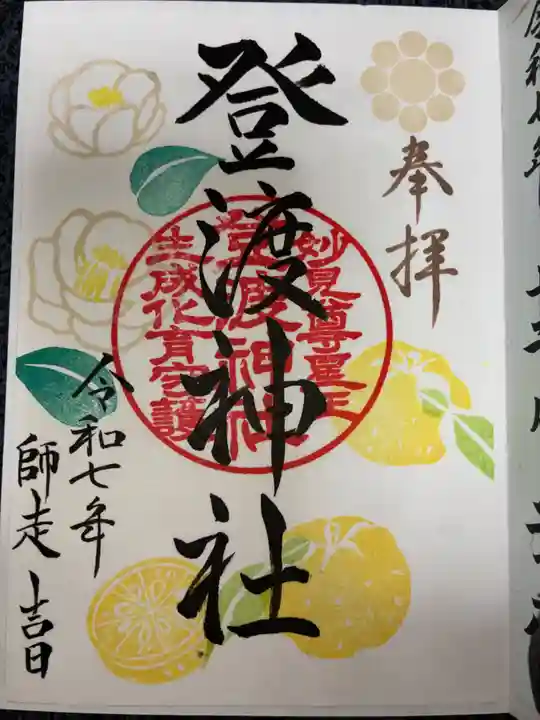 奉拝
登渡神社
妙見尊星王
登渡神社
生成化育守護
令和七年
師走 吉日